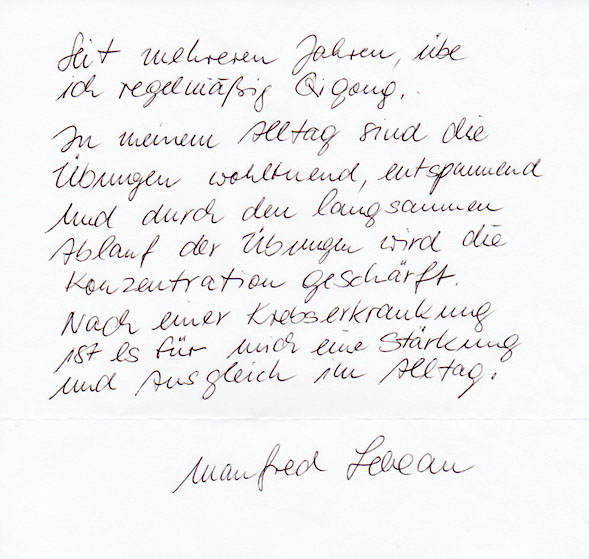 Seit mehreren Jahren, übe
ich regelmäßig Qigong.
In meinem Alltag sind die
Übungen wohltuend, entspannend
und durch den langsamen
Ablauf der Übungen wird die
Konzentration geschärft.
Nach einer Krebserkrankung
ist es für mich eine Stärkung
und Ausgleich im Alltag.
Manfred